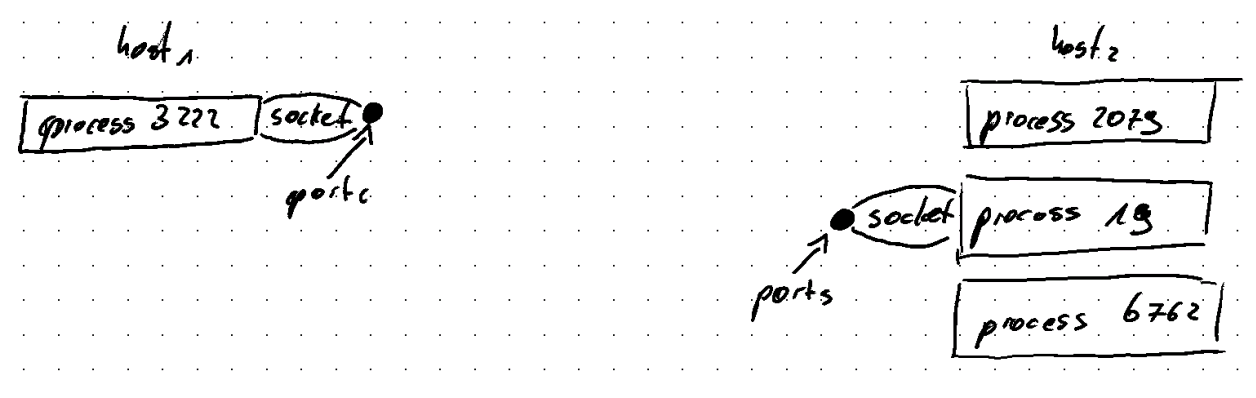 host 1
host 2
process 3222
socket
port c
process 2079
socket
process 19
port s
process 6762